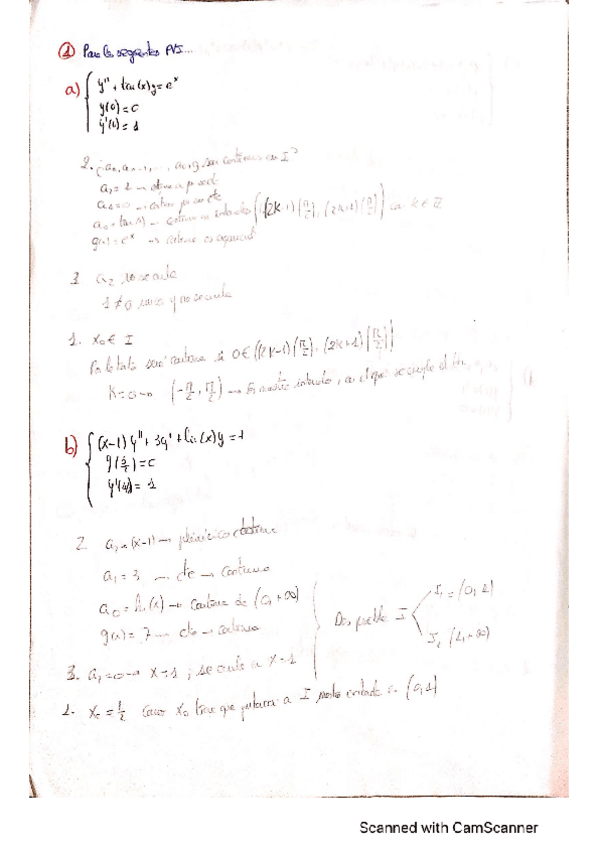 ① Para los siguientes PVI...
a) { y'' + tan(x)y = eˣ
y(0) = c
y'(0) = 1
2. ¿aₙ, aₙ₋₁, ..., a₀, g son continuas en I?
a₀ = tan(x) → continua en intervalo ((2k-1)(π/2), (2k+1)(π/2)) con k ∈ ℤ
g(x) = eˣ → continua
3 a₂ no se anula
1 ≠ 0 y no se anula
1. x₀ ∈ I
Por lo tanto será continua si 0 ∈ ((2k-1)(π/2), (2k+1)(π/2))
k=0 → (-π/2, π/2) → Es nuestro intervalo, en el que se cumple el
b) { (x-1)y'' + 3y' + ln(x)y = 7
y'( ) = 1
2 (x-1) → polinómico continua
a₁ = 3 → cte → continua
a₀ = ln(x) → continua de (0, +∞)
g(x) = 7 → cte → continua
Dos posibles I
I₁ = (0, 1)
I₂ (1, +∞)
3. = 0 → x = 1 ; se anula en x = 1
1. x₀ = 1/2 Como x₀ tiene que pertenecer a I nuestro intervalo es (0, 1)
Scanned with CamScanner